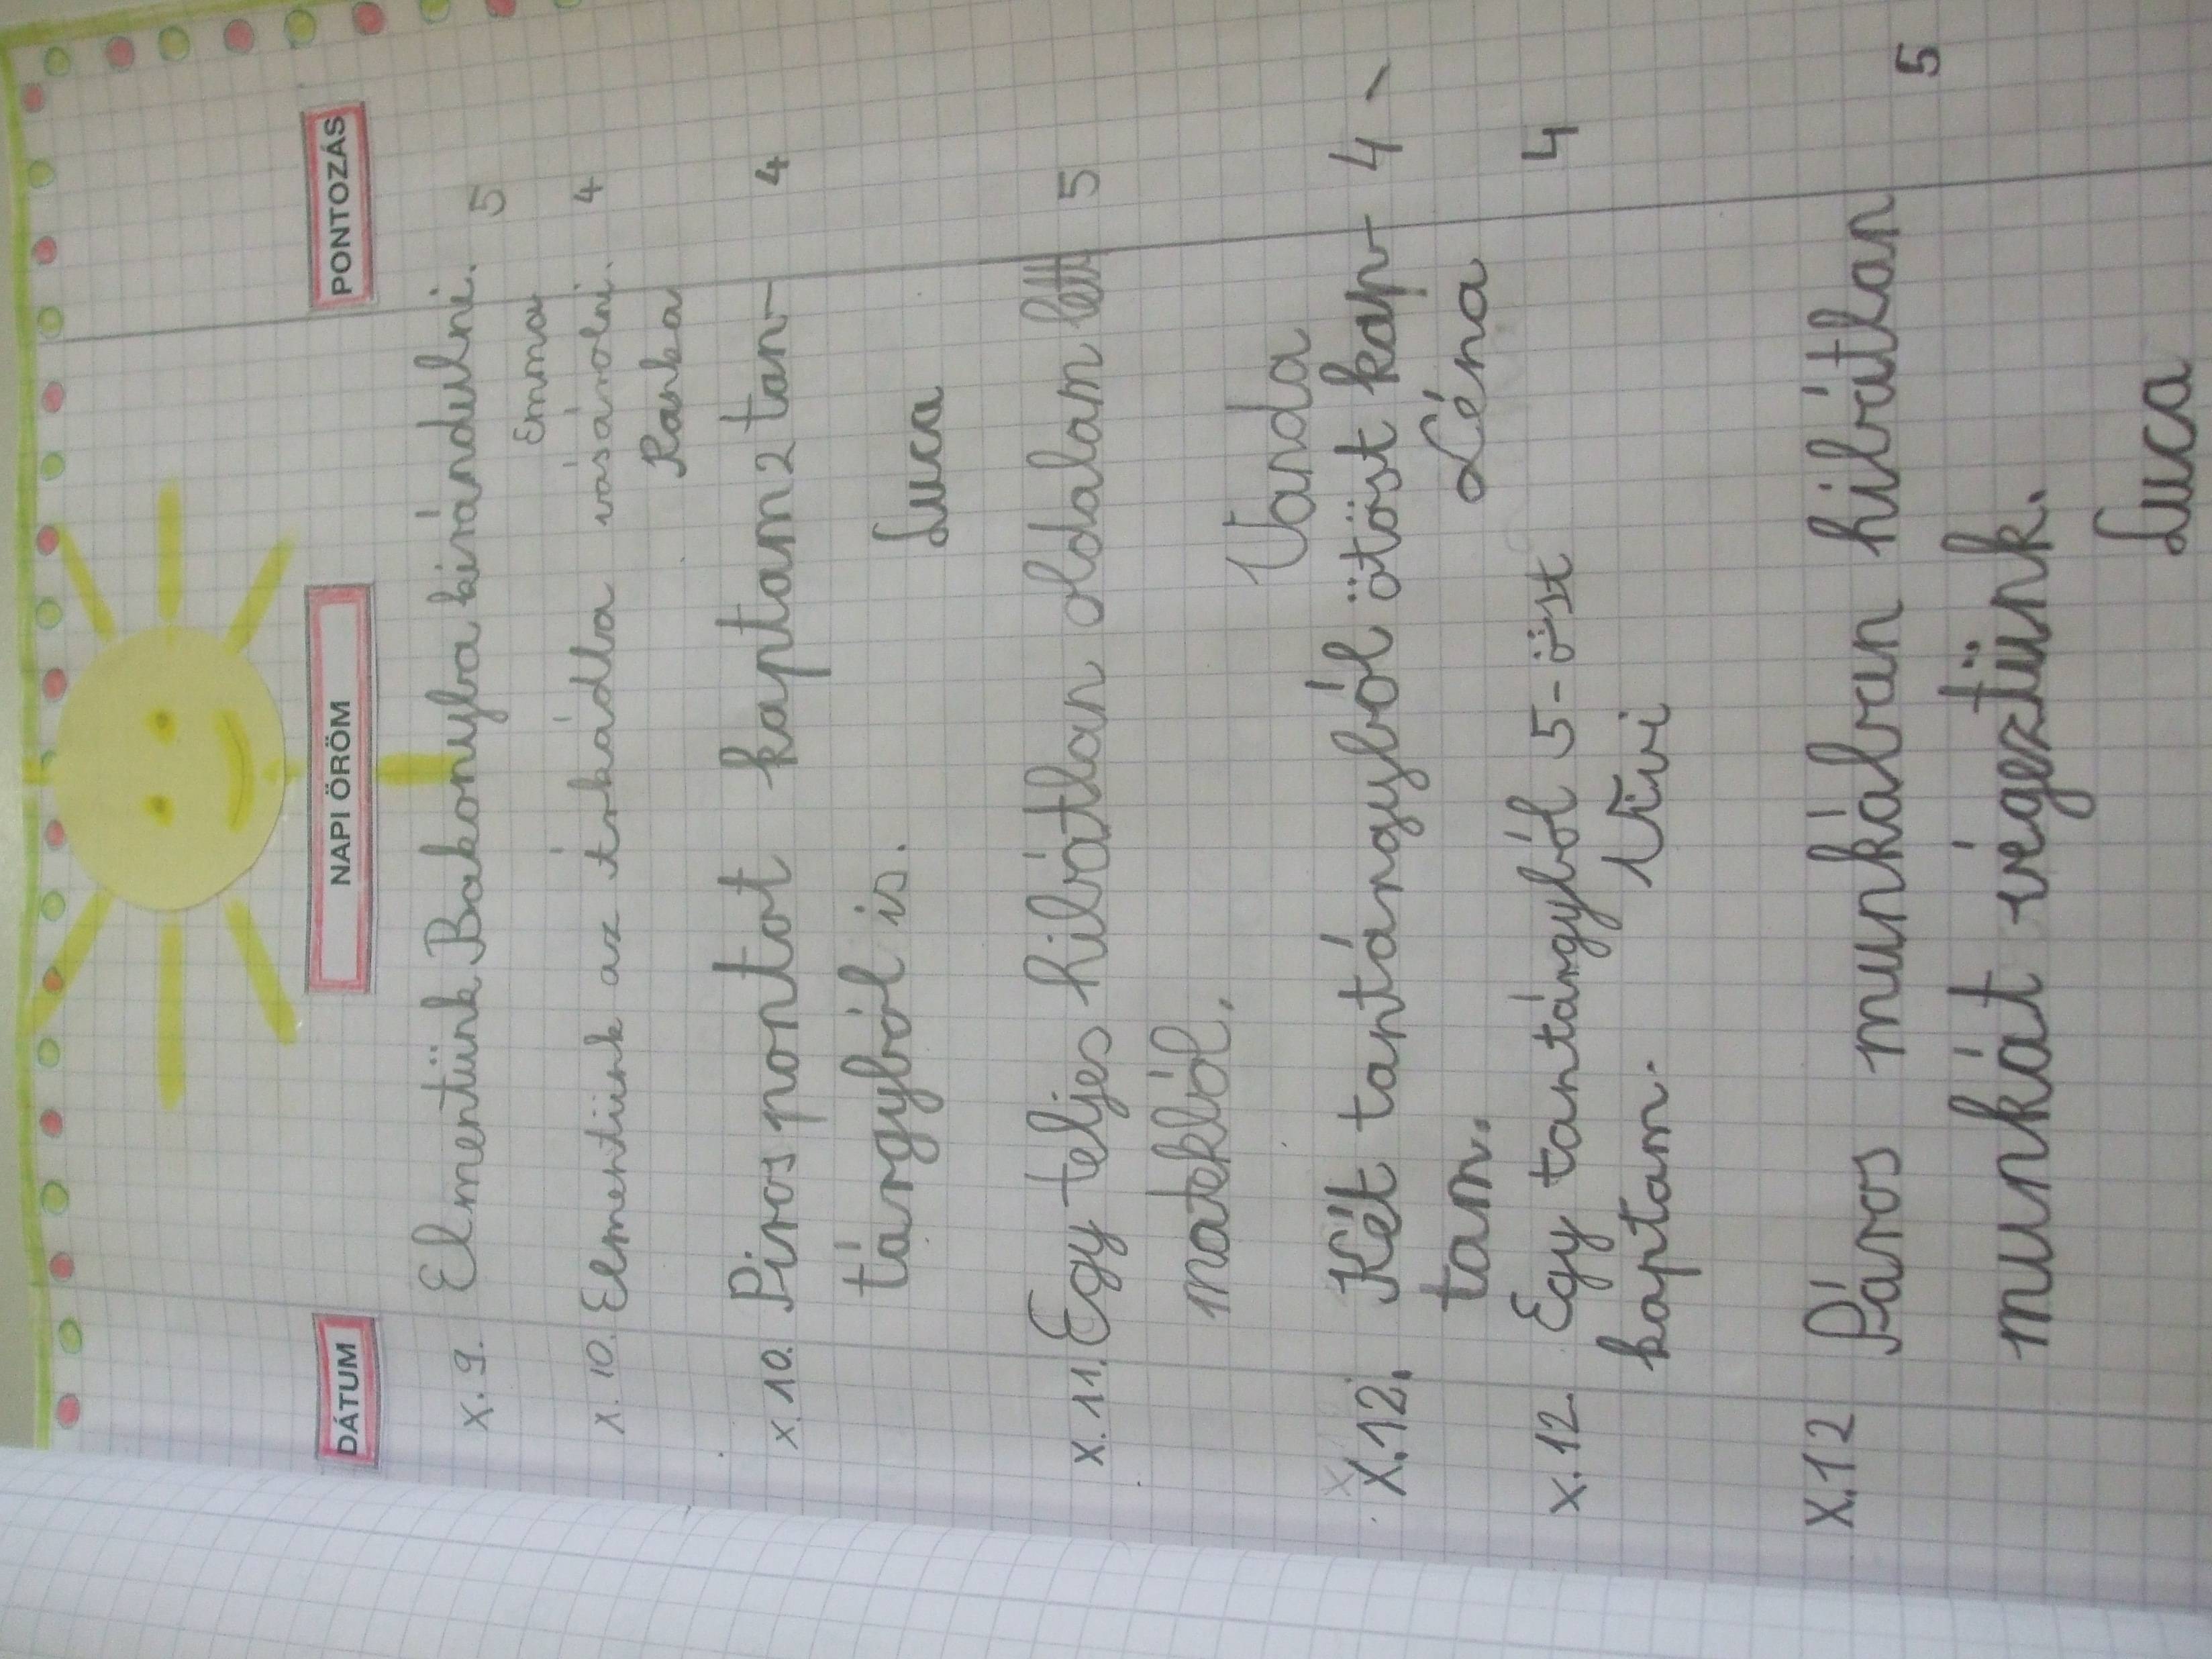 DÁTUM NAPI ÖRÖM PONTOZÁS
X. 9. Elmentünk Bakonyba kirándulni. 5
Emma
X. 10. Elmentünk az árkádba vásárolni. 4
Ranka
X. 10. Piros pontot kaptam 2 tan- 4
tárgyból is.
Luca
X. 11. Egy teljes hibátlan oldalam lett 5
matekból.
Vanda
X. 12. Két tantárgyból ötöst kap- 4
tam.
Léna
X. 12. Egy tantárgyból 5-öst 4
kaptam.
Vivi
X. 12 Páros munkában hibátlan 5
munkát végeztünk.
Luca